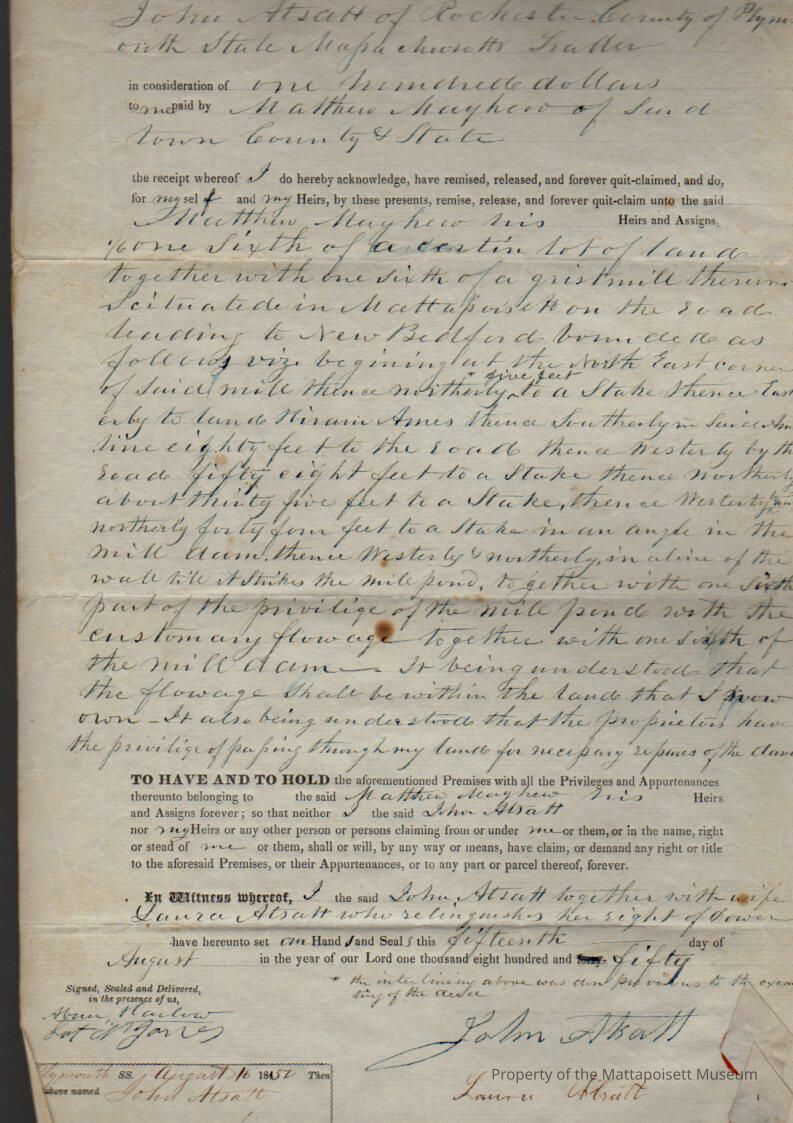 John Atsatt of Rochester County of Plym
outh State Massachusetts Trader
in consideration of one hundred dollars
to me paid by Matthew Mayhew of Said
town County & State
the receipt whereof I do hereby acknowledge, have remised, released, and forever quit-claimed, and do,
for myself and my Heirs, by these presents, remise, release, and forever quit-claim unto the said
Matthew Mayhew his Heirs and Assigns,
one Sixth of a certin lot of land
together with one sixth of a gristmill thereon
Scituated in Mattapoisett on the road
leading to New Bedford bounded as
follows viz. begining at the North East corner
of said mill thence northerly * five feet to a Stake thence East
erly to land Hiram Ames thence Southerly in Said Am
line eighty feet to the road thence Westerly by the
road fifty eight feet to a Stake thence Northerly
about thirty five feet to a Stake, thence Westerly
northerly forty four feet to a Stake in an angle in the
mill dam, thence Westerly & northerly, in a line of the
wall till it Strikes the mill pond, together with one Sixth
part of the privilige of the mill pond with the
customary flowage together with one sixth of
the mill dam - It being understood that
the flowage Shall be within the land that I now
own - It also being understood that the proprietors have
the privilige of passing through my land for necessary repares of the dam
TO HAVE AND TO HOLD the aforementioned Premises with all the Privileges and Appurtenances
thereunto belonging to the said Matthew Mayhew his Heirs
and Assigns forever; so that neither I the said John Atsatt
nor my Heirs or any other person or persons claiming from or under me or them, or in the name, right
or stead of me or them, shall or will, by any way or means, have claim, or demand any right or title
to the aforesaid Premises, or their Appurtenances, or to any part or parcel thereof, forever.
In Witness whereof, I the said John Atsatt together with wife
Laura Atsatt who relinquishes her right of Dower
have hereunto set our Hands and Seals this fifteenth day of
August in the year of our Lord one thousand eight hundred and fifty
* the interlining above was don previous to the execu
ting of the deede
Signed, Sealed and Delivered,
in the presence of us,
Abner Harlow
John Atsatt
Plymouth SS. August 16 1850 Then
above named John Atsatt
Laura Atsatt
Property of the Mattapoisett Museum